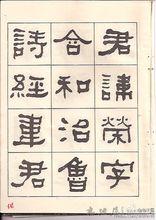 君諱榮字
含和治魯
詩經韋君